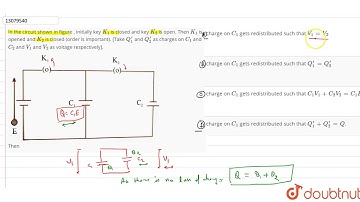 13079540
In the circuit shown in figure , initially key K₁ is closed and key K₂ is open. Then K₁ is
opened and K₂ is closed (order is important). [Take Q₁' and Q₂' as charges on C₁ and
C₂ and V₁ and V₂ as voltage respectively].
K₁ K₂
(o) (o)
C₁ C₂
Q = C₁E
E
Then
charge on C₁ gets redistributed such that V₁ = V₂
charge on C₁ gets redistributed such that Q₁' = Q₂'
charge on C₁ gets redistributed such that C₁V₁ + C₂V₂ = C₁E
charge on C₁ gets redistributed such that Q₁' + Q₂' = Q.
V₁ C₁ Q₁ Q₂ C₂ V₁
As there is no loss of charge Q = Q₁ + Q₂
doubtnut